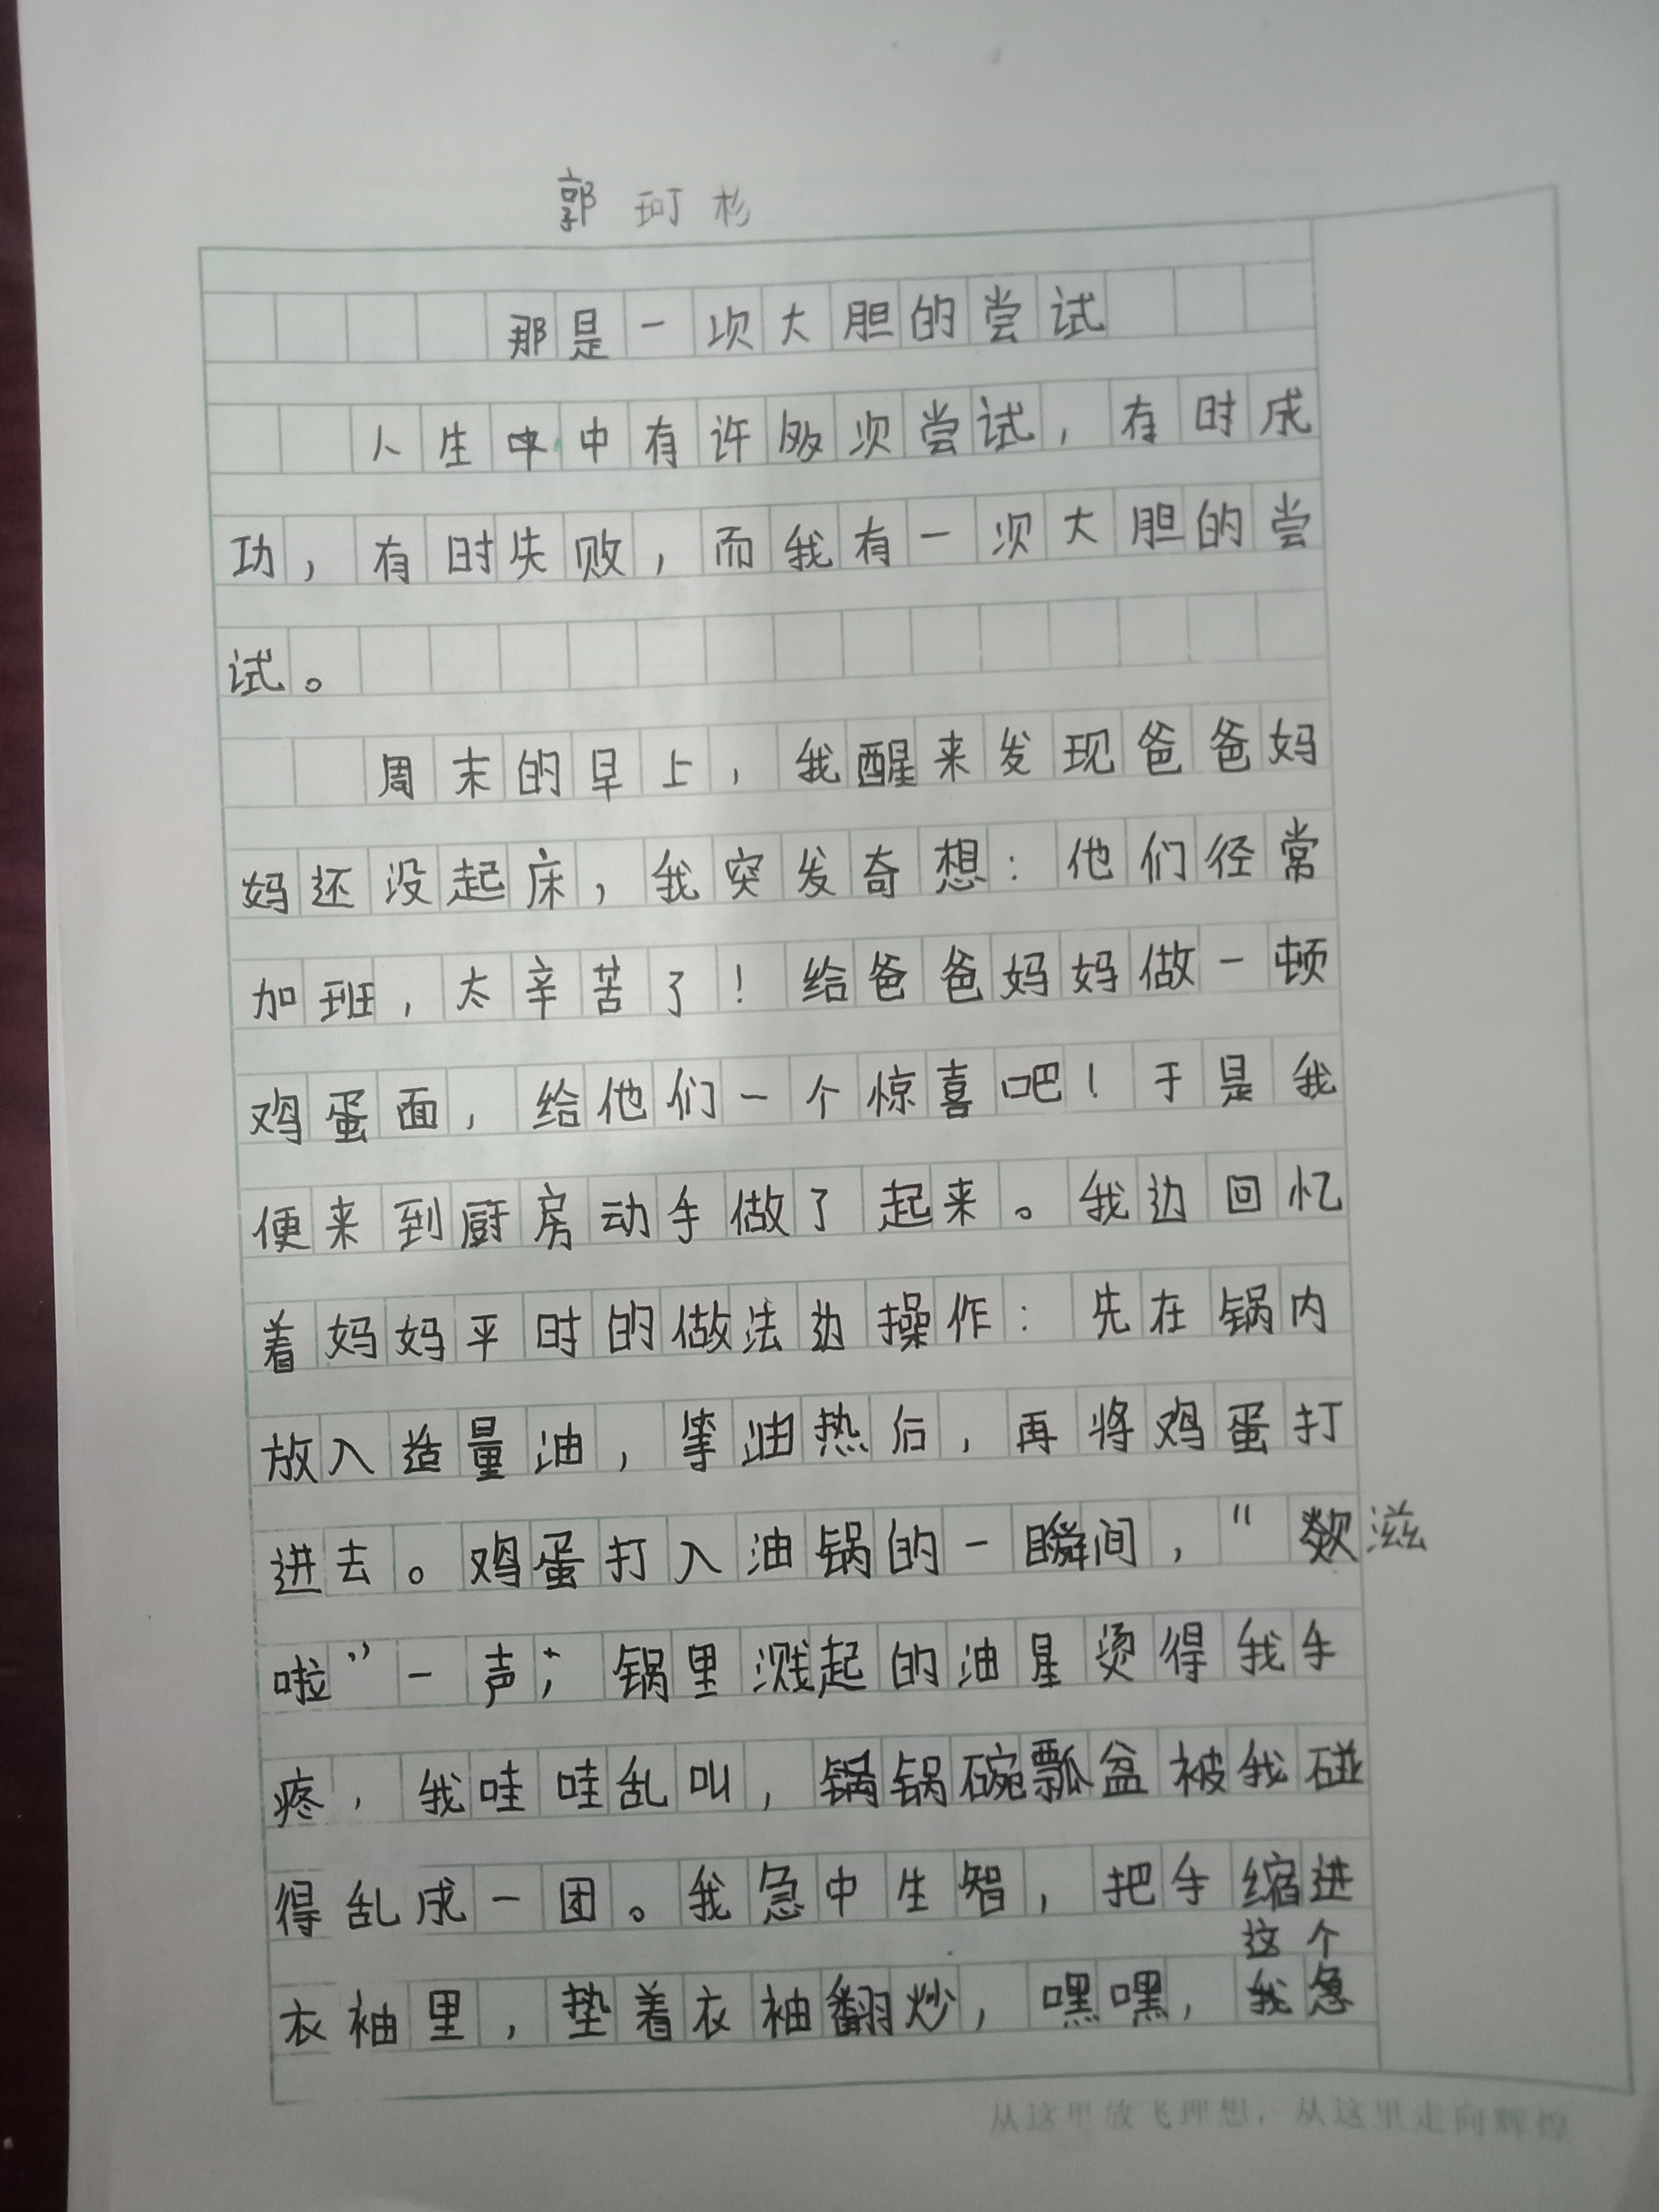 郭珂杉
那是一次大胆的尝试
人生中中有许多次尝试，有时成
功，有时失败，而我有一次大胆的尝
试。
周末的早上，我醒来发现爸爸妈
妈还没起床，我突发奇想：他们经常
加班，太辛苦了！给爸爸妈妈做一顿
鸡蛋面，给他们一个惊喜吧！于是我
便来到厨房动手做了起来。我边回忆
着妈妈平时的做法边操作：先在锅内
放入适量油，等油热后，再将鸡蛋打
进去。鸡蛋打入油锅的一瞬间，“滋
啦”一声，锅里溅起的油星烫得我手
疼，我哇哇乱叫，锅锅碗瓢盆被我碰
得乱成一团。我急中生智，把手缩进
这个
衣袖里，垫着衣袖翻炒，嘿嘿，我急
从这里放飞理想，从这里走向辉煌